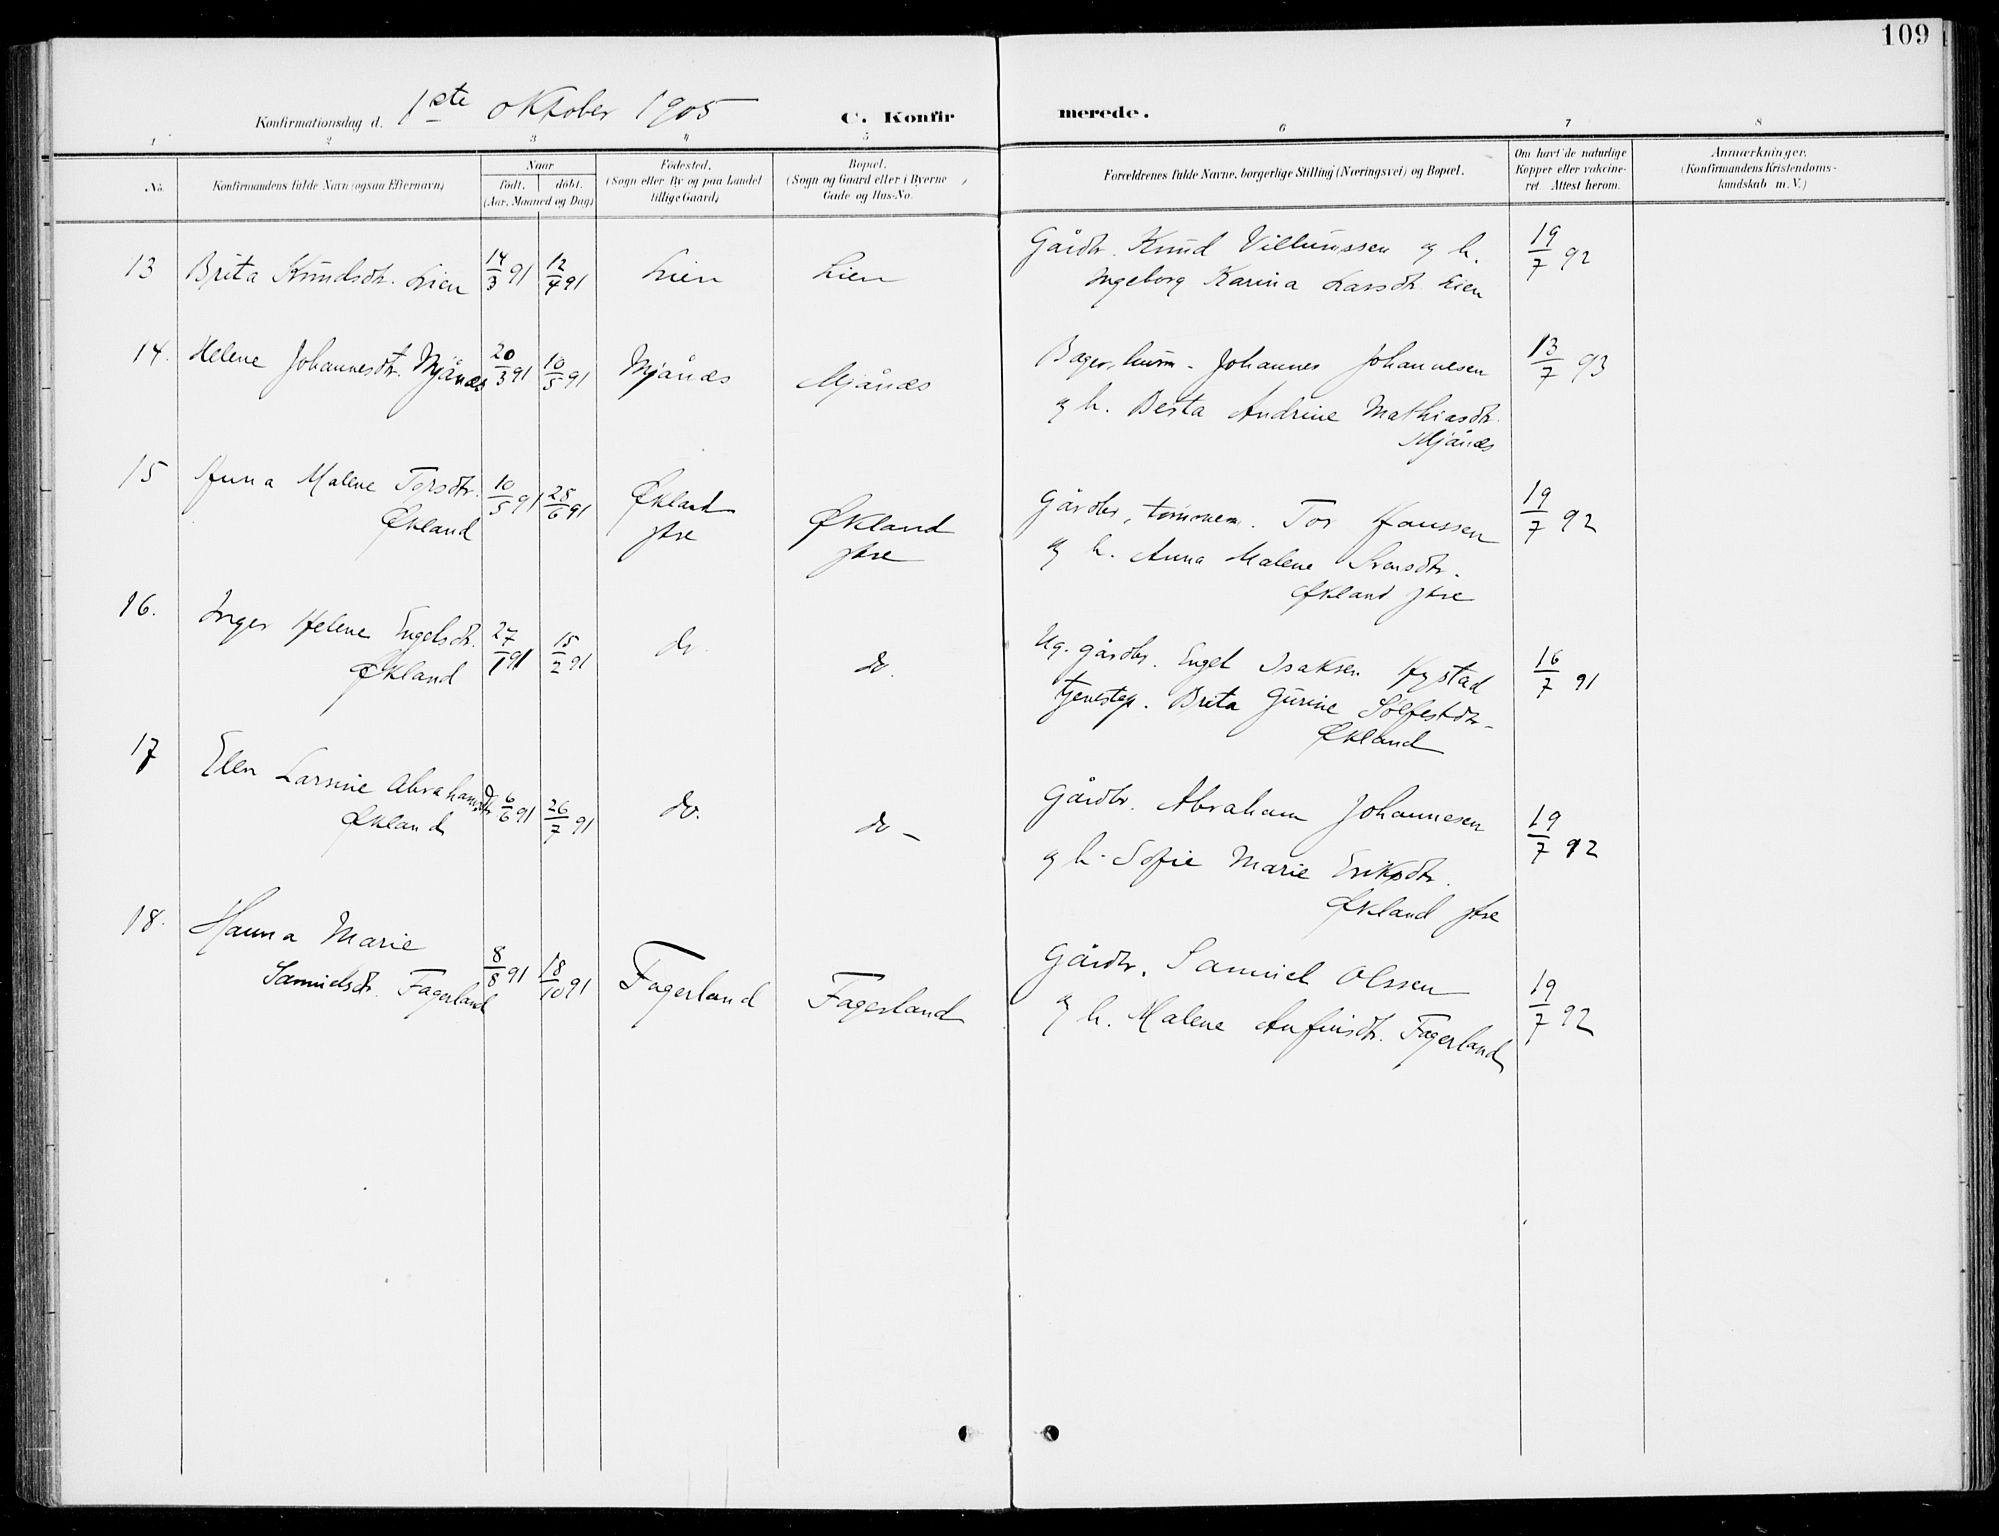 109
Konfirmationsdag d. 1ste oktober 1905
C. Konfirmerede.
1 2 3 4 5 6 7 8
No.
Konfirmandens fulde Navn (ogsaa Efternavn)
Naar
født. døbt.
(Aar, Maaned og Dag)
Fødested.
(Sogn eller By og paa Landet
tillige Gaard)
Bopæl.
(Sogn og Gaard eller i Byerne
Gade og Hus-No.
Forældrenes fulde Navne, borgerlige Stilling (Næringsvei) og Bopæl.
Om havt de naturlige
Kopper eller vakcine-
ret. Attest herom.
Anmærkninger.
(Konfirmandens Kristendoms-
kundskab m. V.)
13 Brita Knudsdtr. Lien 14/3 91 12/4 91 Lien Lien Gårdbr. Knud Villumssen og h. 19/7 92
Ingeborg Karina Larsdtr. Lien
14. Helene Johannesdtr. Mjånæs 20/3 91 10/5 91 Mjånæs Mjånæs Bager, husm. Johannes Johannesen 13/7 93
og h. Berta Andrine Mathiasdtr.
Mjånæs
15 Anna Malene Torsdtr. 10/5 91 28/6 91 Økland Økland Gårdbr, Tor Hanssen 19/7 92
Økland ytre ytre og h. Anna Malene Svensdtr.
Økland ytre
16. Inger Helene Engelsdtr. 27/1 91 15/2 91 do. do. Ug. gårdbr. Engel Isaksen Hystad 16/7 91
Økland tjenestep. Brita Gurine Sølfestdtr.
Økland
17 Elen Larsine Abrahamsdtr 6/6 91 26/7 91 do. do - Gårdbr. Abraham Johannesen 19/7 92
Økland og h. Sofie Marie Eriksdtr.
Økland ytre
18. Hanna Marie 8/8 91 18/10 91 Fagerland Fagerland Gårdbr. Samuel Olssen 19/7 92
Samuelsdtr. Fagerland og h. Malene Anfinsdtr. Fagerland